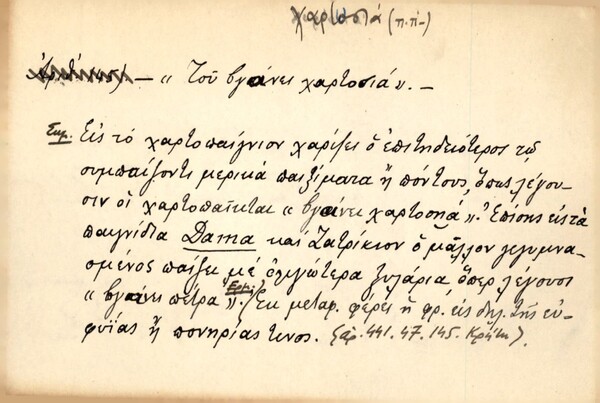 χαρτοσιά (π.πί-)
— « Τοῦ βγαίνει χαρτοσιά ». —
Σημ. Εἰς τό χαρτοπαίγνιον χαρίζει ὁ ἐπιτηδειότερος τῷ
συμπαίζοντι μερικά παιξίματα ἤ πόντους, ὅπως λέγου-
σιν οἱ χαρτοπαῖκται « βγαίνει χαρτοσιά ». Ἐπίσης εἰς τά
παιγνίδια Dama καί Ζατρίκιον ὁ μᾶλλον γεγυμνα-
σμένος παίζει μέ ὀλιγώτερα ξυλάρια, ὅπερ λέγουσι
« βγαίνει πέτρα ». Ἑρμ: (Ἐκ μεταφ. φέρει ἡ φρ. εἰς δηλ. τῆς εὐ-
φυΐας ἤ πονηρίας τινος. (ἀρ. 441. 47. 145. Κρήτη).